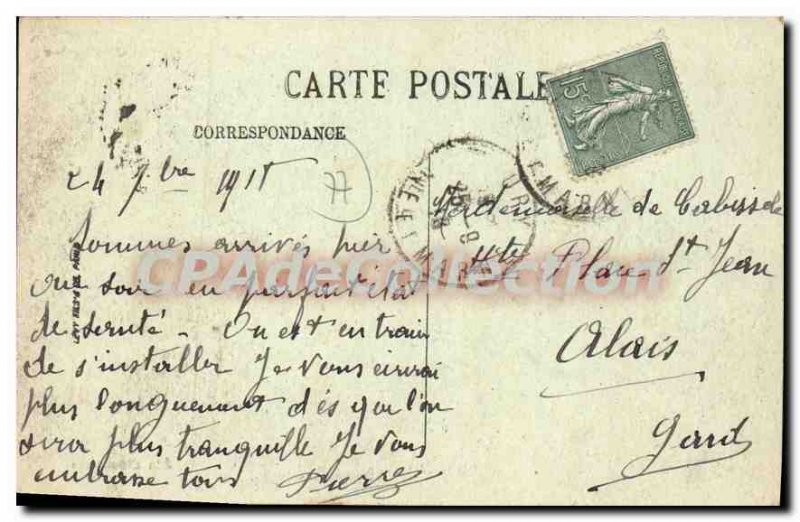 CARTE POSTALE
CORRESPONDANCE
24 7bre 1915
77
Sommes arrivés hier
au soir en parfait état
de santé - On est en train
de s'installer Je vous écrirai
plus longuement dès que l'on
sera plus tranquille Je vous
embrasse tous Pierre
Mademoiselle de Cabissole
Hte Place St Jean
Alais
Gard
15c
LEVY FILS & CIE PARIS
CPAdeCollection